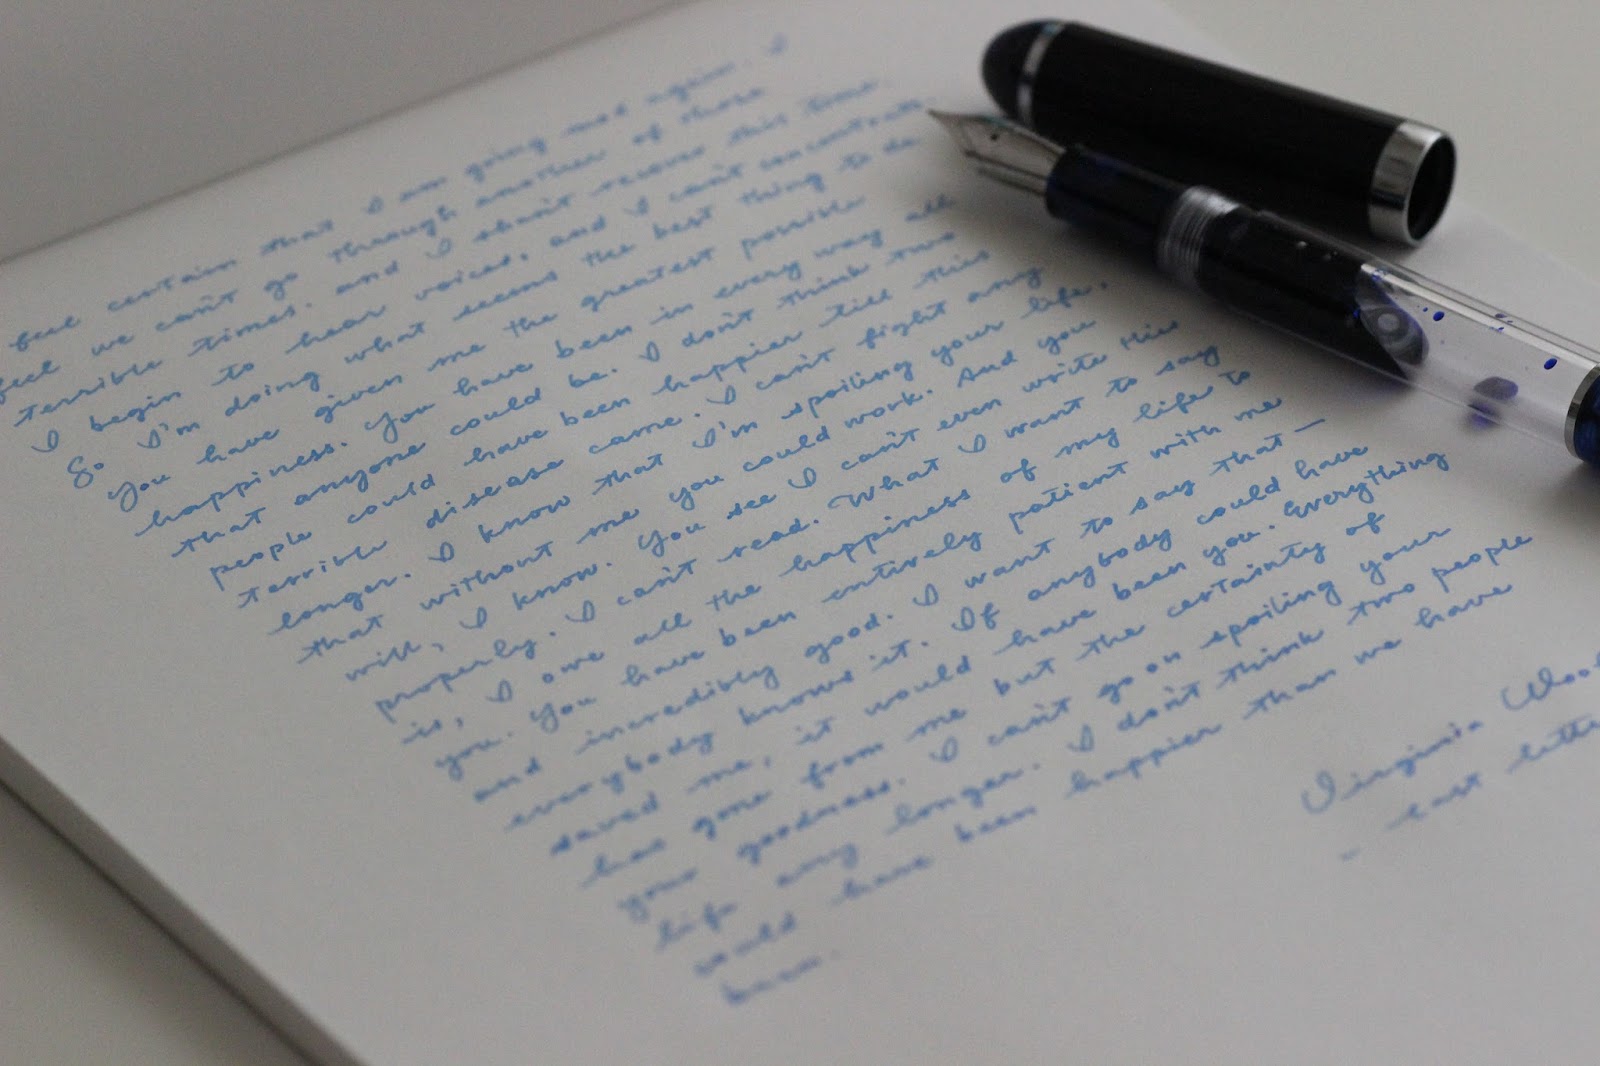 feel certain that I am going mad again. I
feel we can't go through another of those
terrible times. and I shan't recover this time.
I begin to hear voices, and I can't concentrate.
So I'm doing what seems the best thing to do.
You have given me the greatest possible
happiness. You have been in every way all
that anyone could be. I don't think two
people could have been happier till this
terrible disease came. I can't fight any
longer. I know that I'm spoiling your life,
that without me you could work. And you
will, I know. You see I can't even write this
properly. I can't read. What I want to say
is, I owe all the happiness of my life to
you. You have been entirely patient with me
and incredibly good. I want to say that —
everybody knows it. If anybody could have
saved me, it would have been you. Everything
has gone from me but the certainty of
your goodness. I can't go on spiling your
life any longer. I don't think two people
could have been happier than we have
been.
Virginia Wool
- last lette